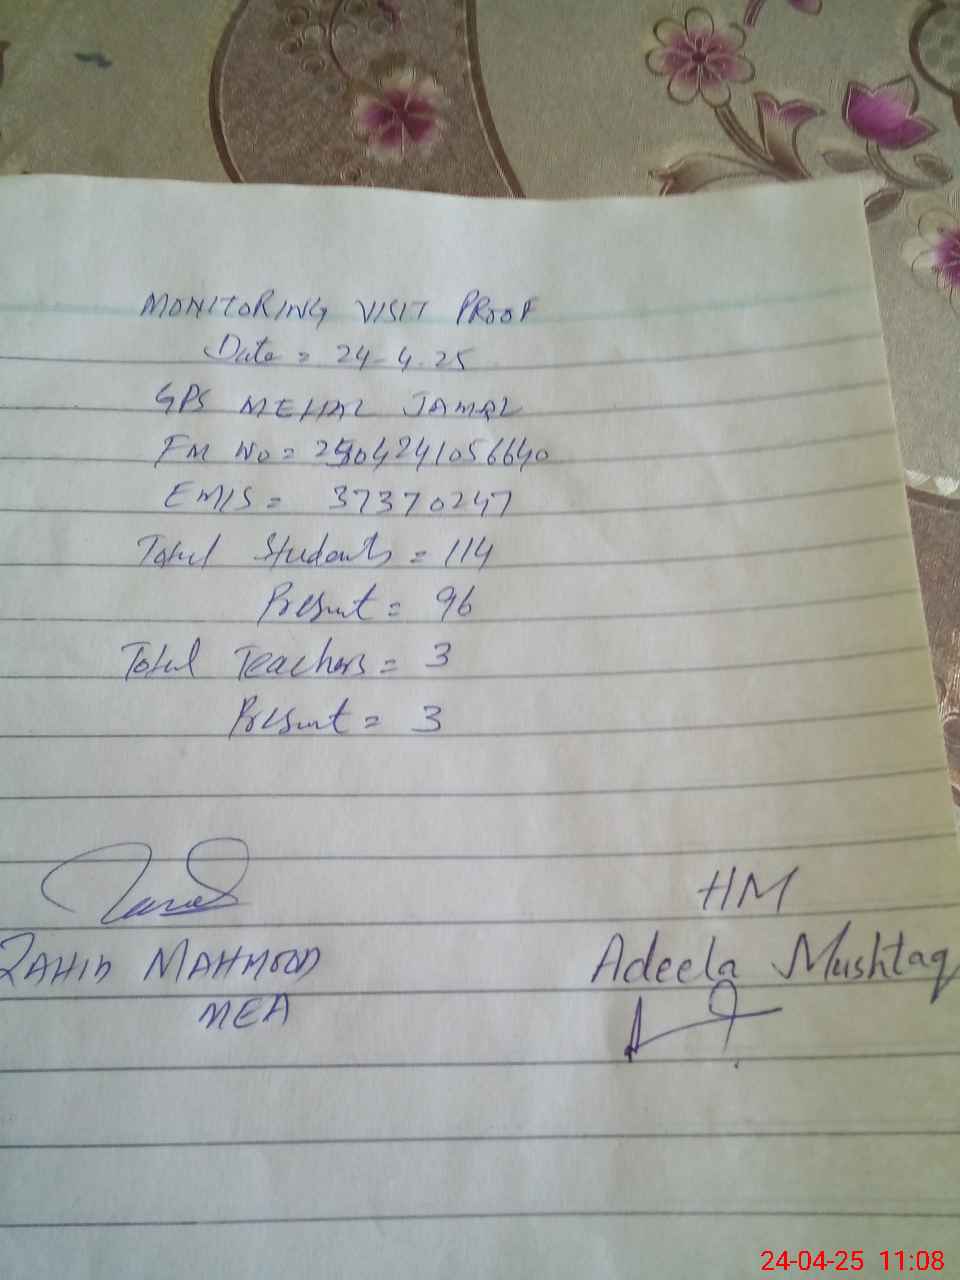 MONITORING VISIT PROOF
Date = 24-4-25
GPS MEHAL JAMAL
FM No = 2504241056640
EMIS = 37370247
Total Students = 114
Present = 96
Total Teachers = 3
Present = 3
HM
ZAHID MAHMOOD
Adeela Mushtaq
MEA
24-04-25 11:08